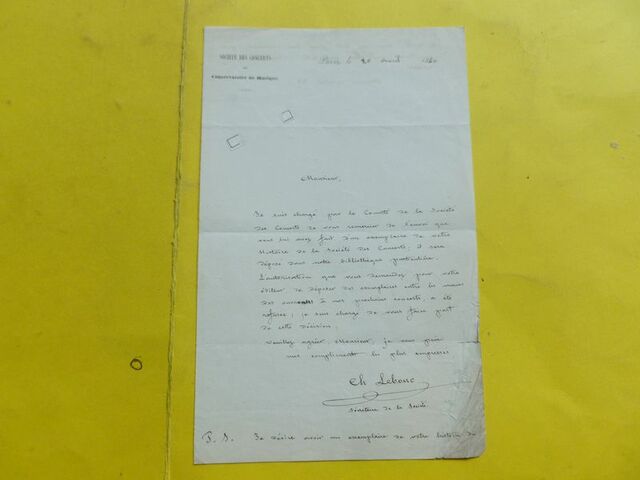 SOCIÉTÉ DES CONCERTS
DU
Conservatoire de Musique
Paris le 20 avril 1860
Monsieur,
Je suis chargé par le Comité de la Société
des Concerts de vous remercier de l'envoi que
vous lui avez fait d'un exemplaire de votre
Histoire de la Société des Concerts; il sera
déposé dans notre bibliothèque particulière.
L'autorisation que vous demandez pour votre
éditeur de déposer des exemplaires entre les mains
des à nos prochains concerts, a été
refusée; je suis chargé de vous faire part
de cette décision.
Veuillez agréer Monsieur, je vous prie
mes compliments les plus empressés
Ch Lebouc
Secrétaire de la Société
P. S. Je désire avoir un exemplaire de votre histoire de